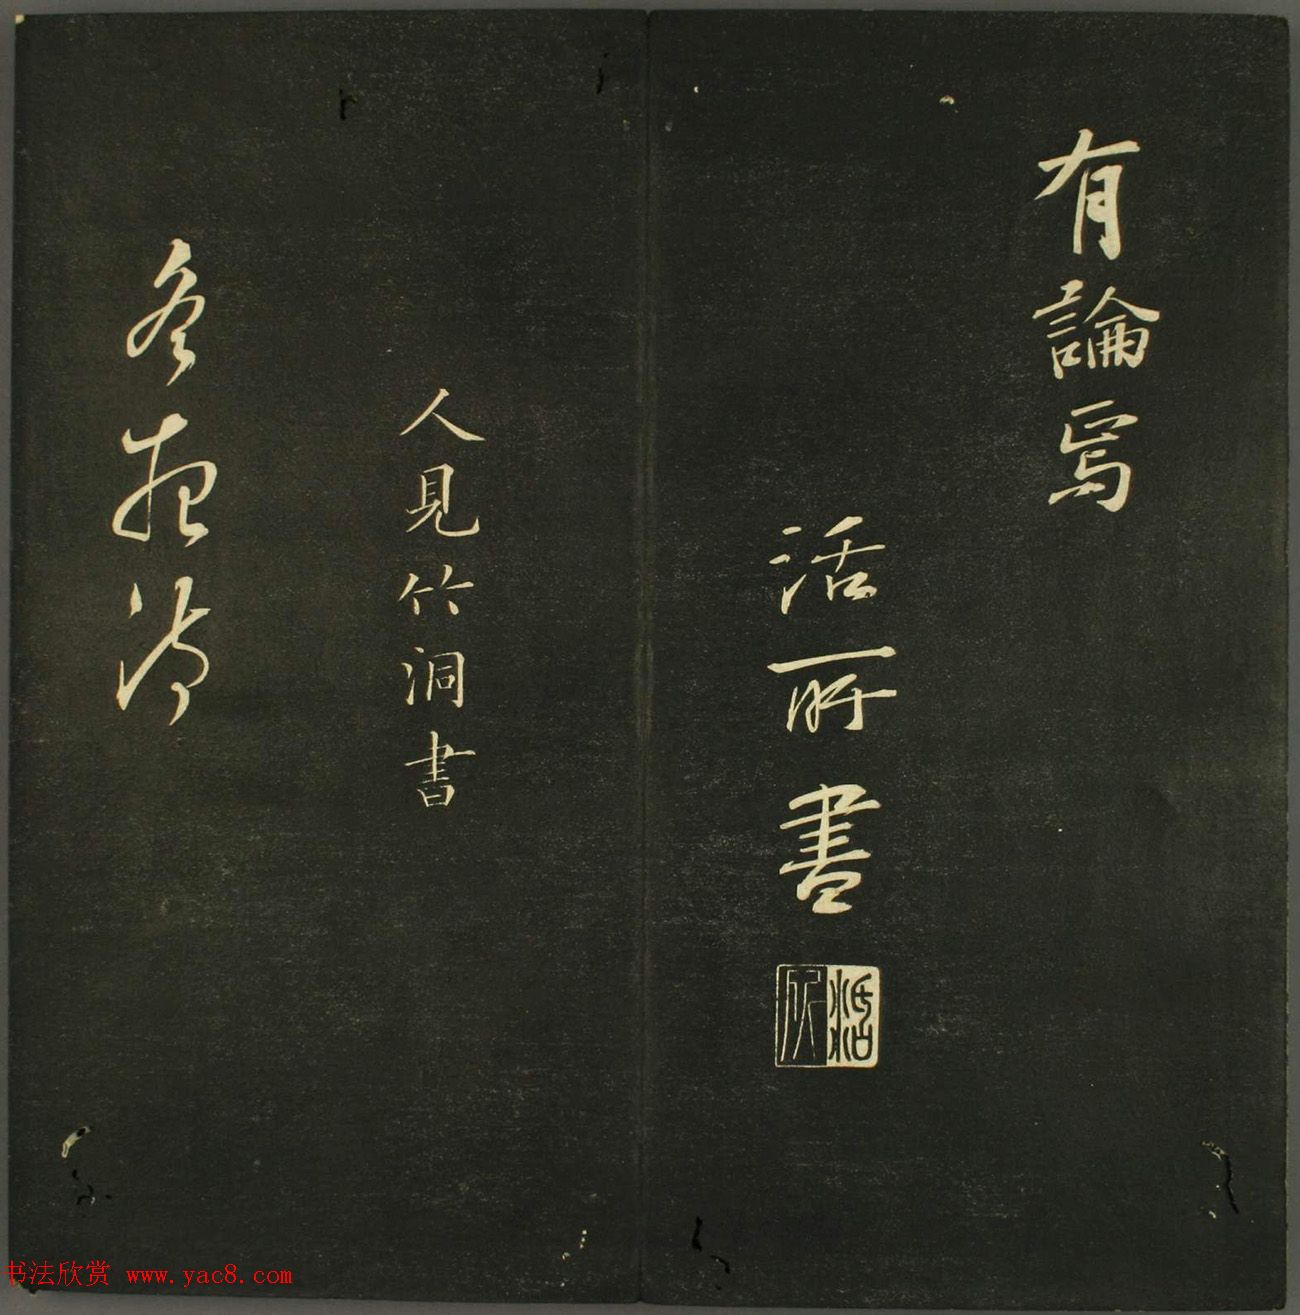 有論焉
活所書
活所
人見竹洞書
冬夜
书法欣赏 www.yac8.com